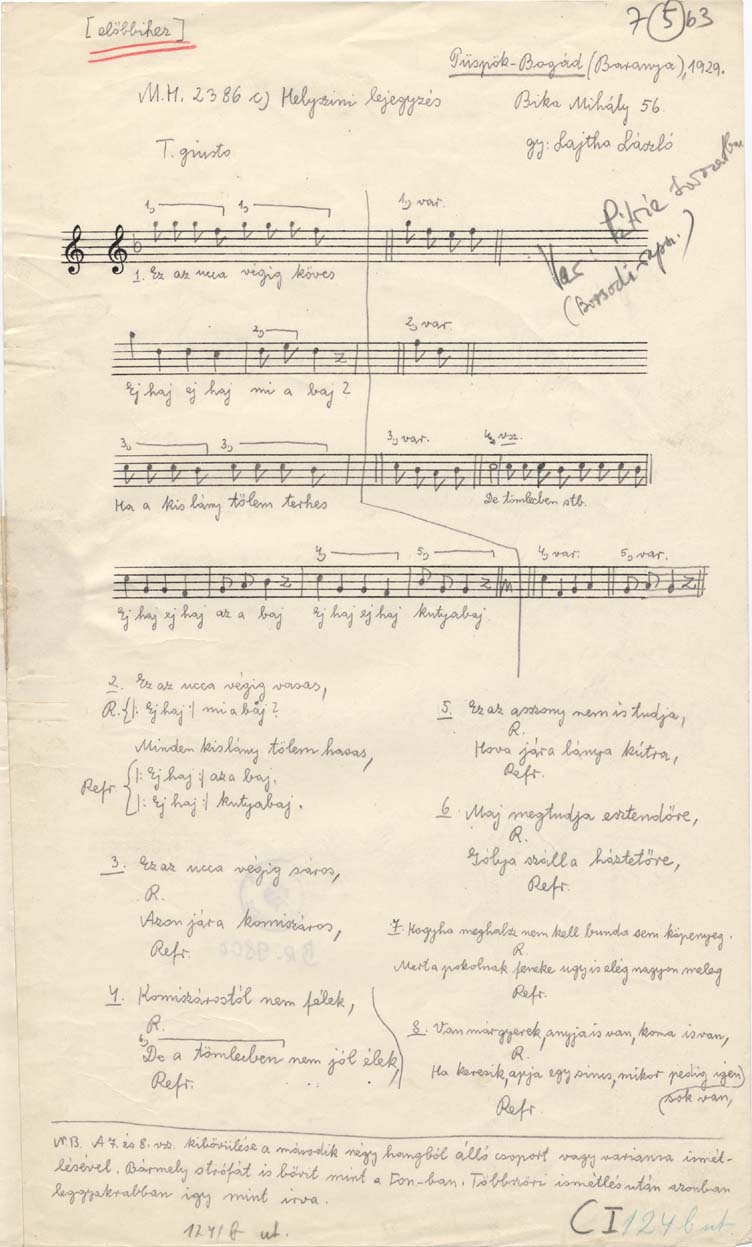 [előbbihez]
7 5 63
Püspök-Bogád (Baranya), 1929.
M.H. 2386 c) Helyszini lejegyzés
Bika Mihály 56.
T. giusto
gy: Lajtha László
Var: Pátria
(Borsodi rapn.)
1, 1, 1, var.
1. Ez az ucca végig köves
2, 2, var.
Ej haj ej haj mi a baj?
3, 3, 3, var. 4, vsz.
Ha a kis lány tőlem terhes
De tömlecben stb.
4, 5, 4, var. 5, var.
Ej haj ej haj az a baj Ej haj ej haj kutyabaj.
2. Ez az ucca végig vasas,
R. {|: Ej haj :| mi a baj?
Minden kislány tőlem hasas,
Refr. {|: Ej haj :| az a baj.
|: Ej haj :| kutyabaj.
3. Ez az ucca végig sáros,
R.
Azon jára komiszáros,
Refr.
4. Komiszárostól nem félek,
R.
6,
De a tömlecben nem jól élek,
Refr.
5. Ez az asszony nem is tudja,
R.
Hova jára lánya kútra,
Refr.
6. Maj megtudja esztendőre,
R.
Gólya szálla háztetőre,
Refr.
7. Hogyha meghalsz nem kell bunda sem köpenyeg.
R.
Mert a pokolnak feneke ugyis elég nagyon meleg
Refr.
8. Van már gyerek, anyja is van, koma is van,
R.
Ha keresik, apja egy sincs, mikor pedig igen
(sok van,
Refr.
N.B. A 7. és 8. vsz. kibővülése a második négy hangból álló csoport vagy variansa ismét-
lésével. Bármely strófát is bővit mint a Fon-ban. Többszöri ismétlés után azonban
leggyakrabban igy mint irva.
1241/b ut.
C I 124 b ut.